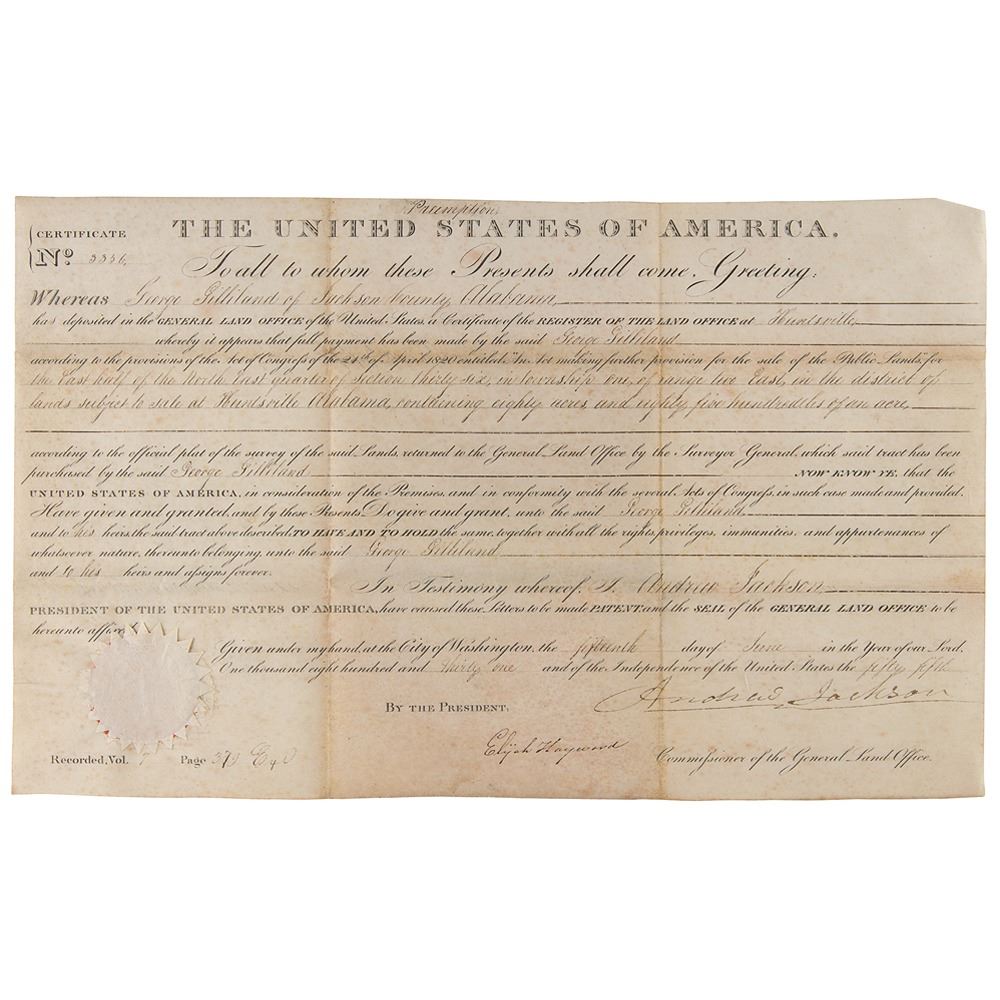 Preemption
CERTIFICATE
THE UNITED STATES OF AMERICA.
No. 3336
To all to whom these Presents shall come, Greeting:
Whereas George Gilliland of Jackson County, Alabama
has deposited in the GENERAL LAND OFFICE of the United States, a Certificate of the REGISTER OF THE LAND OFFICE at Huntsville
whereby it appears that full payment has been made by the said George Gilliland
according to the provisions of the Act of Congress of the 24th of April 1820 entitled "An Act making further provision for the sale of the Public Lands," for
the East half of the North East quarter of Section thirty six, in Township one, of range two East, in the district of
lands subject to sale at Huntsville Alabama, containing eighty acres, and eighty five hundredths of an acre
according to the official plat of the survey of the said Lands, returned to the General Land Office by the Surveyor General, which said tract has been
purchased by the said George Gilliland NOW KNOW YE, that the
UNITED STATES OF AMERICA, in consideration of the Premises, and in conformity with the several Acts of Congress, in such case made and provided,
Have given and granted, and by these Presents Do give and grant, unto the said George Gilliland
and to his heirs, the said tract above described: TO HAVE AND TO HOLD the same, together with all the rights, privileges, immunities, and appurtenances of
whatsoever nature, thereunto belonging, unto the said George Gilliland
and to his heirs and assigns forever.
In Testimony whereof, I, Andrew Jackson
PRESIDENT OF THE UNITED STATES OF AMERICA, have caused these Letters to be made PATENT, and the SEAL of the GENERAL LAND OFFICE to be
hereunto affixed.
Given under my hand, at the City of Washington, the fifteenth day of June in the Year of our Lord,
One thousand eight hundred and thirty one and of the Independence of the United States the fifty fifth
Andrew Jackson
BY THE PRESIDENT,
Elijah Hayward
Commissioner of the General Land Office.
Recorded, Vol. Page